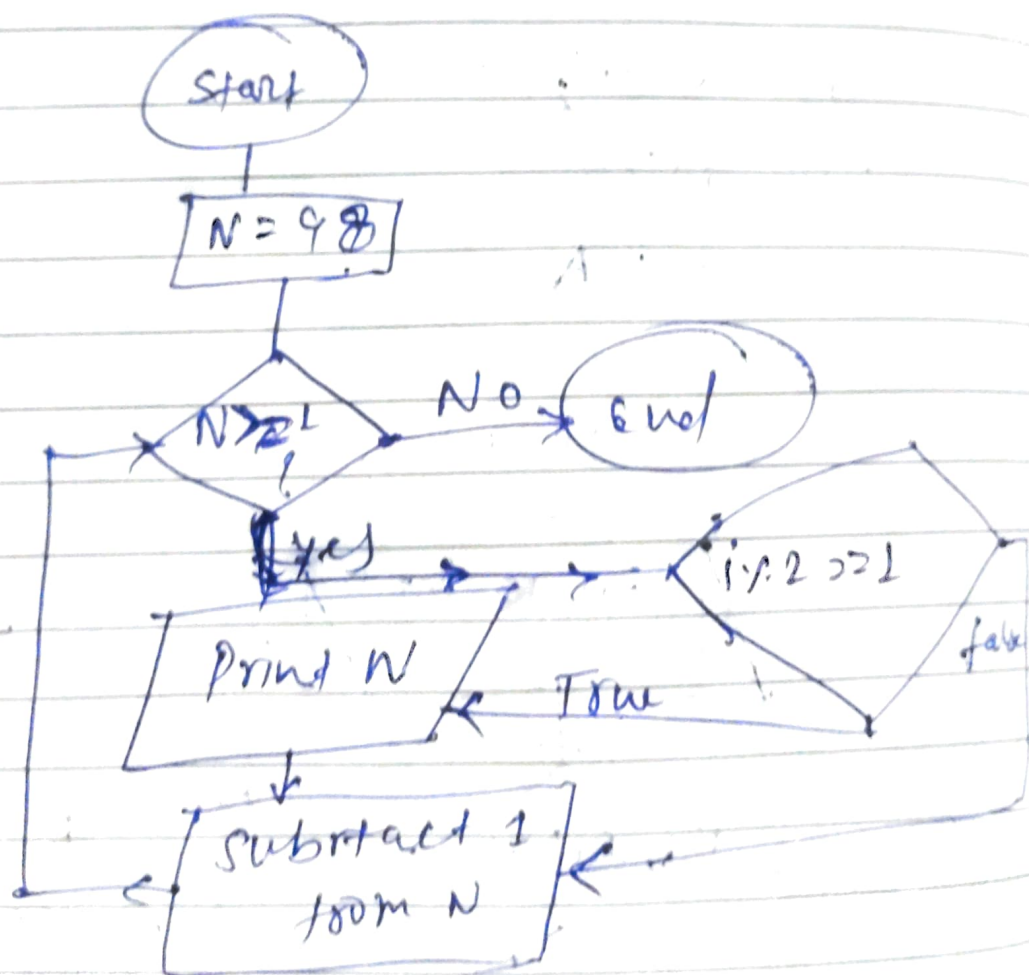 Start
N = 98
N>=1
?
No
End
yes
i%2==1
false
Print N
True
Subrtact 1
from N